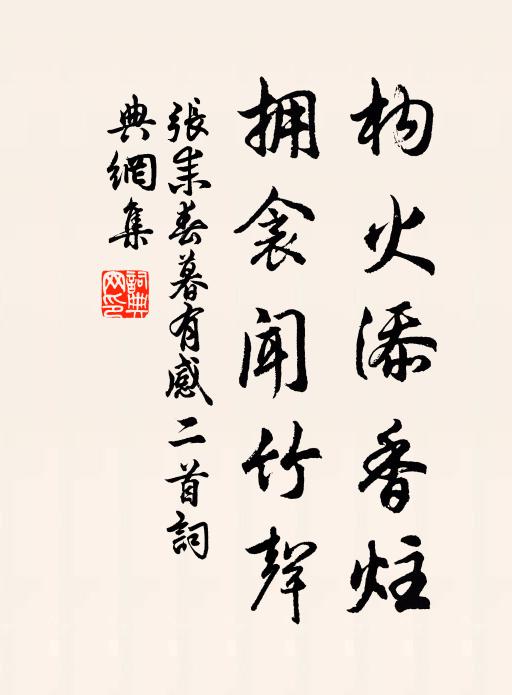 构火添香炷
拥衾聞竹聲
張耒春暮有感二首詞
典網集
詞典
网印